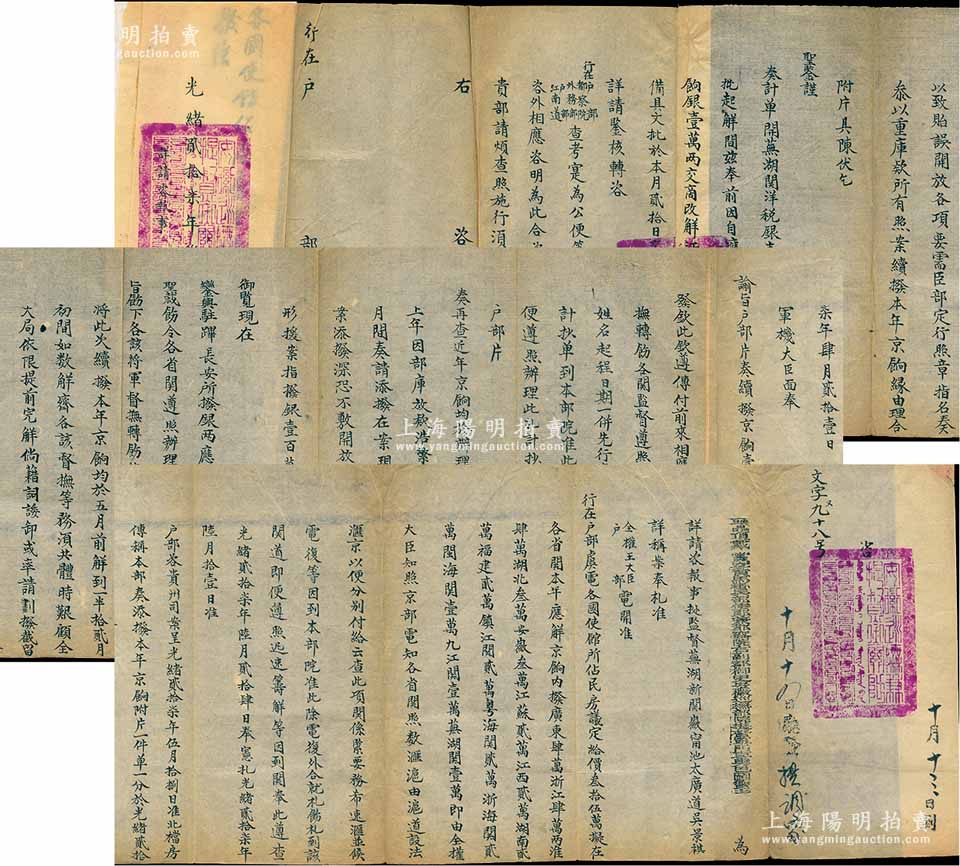 以致貽誤開放各項要需臣部定行照章指名奏
參以重庫欵所有照案續撥本年京餉緣由理合
附片具陳伏乞
聖鑒謹
奏計单開蕪湖関洋税銀
批起解間茲奉前因自
餉銀壹萬兩交商改解
備具文批於本月貳拾日
詳請鑒核轉咨
行在户部
都察院
外務部
江南道
查考寔為公便
咨外相應咨明為此合
貴部請煩查照施行須
右咨
行在户部
光緒貳拾柒年
來年肆月貳拾壹日
軍機大臣面奉
諭旨户部片奏續撥京餉
發欽此欽遵傳付前來相應
撫轉飭各関監督遵照
姓名起程日期一併先行
計抄单到本部院准此
便遵照辦理此計抄
户部片
奏再查近年京餉均
上年因部庫放欵浩繁
月間奏請添撥在案現
案添撥深恐不敷開放
形援案指撥銀壹百萬
御覽現在
鑾輿駐蹕長安所撥銀兩應
聖裁飭令各省関遵照辦理
旨飭下各該将軍督撫轉飭
将此次續撥本年京餉均於五月前解到一半拾貳月
初間如數解齊各該督撫等務須共體時艱顧全
大局依限提前完解倘藉詞諉卸或率請劃撥截留
十月十三日到
文字九十八号
咨
為
詳請咨報事㨿監督蕪湖新関徽甯池太廣道吳景祺
詳稱案奉札准
全權王大臣
户部
電開准
行在户部虞電各國使館所佔民房議定給價叁拾伍萬擬在
各省関本年應解京餉内撥廣東肆萬浙江肆萬兩淮
肆萬湖北叁萬安徽叁萬江蘇貳萬江西貳萬湖南貳
萬福建貳萬鎮江関貳萬粤海関貳萬浙海関貳
萬閩海関壹萬九江関壹萬蕪湖関壹萬即由全權
大臣知照京部電知各省関照數滙滬由滬道設法
滙京以便分别付給云查此項関係緊要務布速滙並候
電復等因到本部院准此除電復外合就札飭札到該
関道即便遵照迅速籌解等因到関奉此遵查
光緒貳拾柒年陸月貳拾肆日奉憲札光緒貳拾柒年
陸月拾壹日准
户部咨貴州司案呈光緒貳拾柒年伍月拾捌日准北檔房
傳稱本部奏添撥本年京餉附片一件单一分於光緒貳拾
上海陽明拍賣
yangmingauction.com